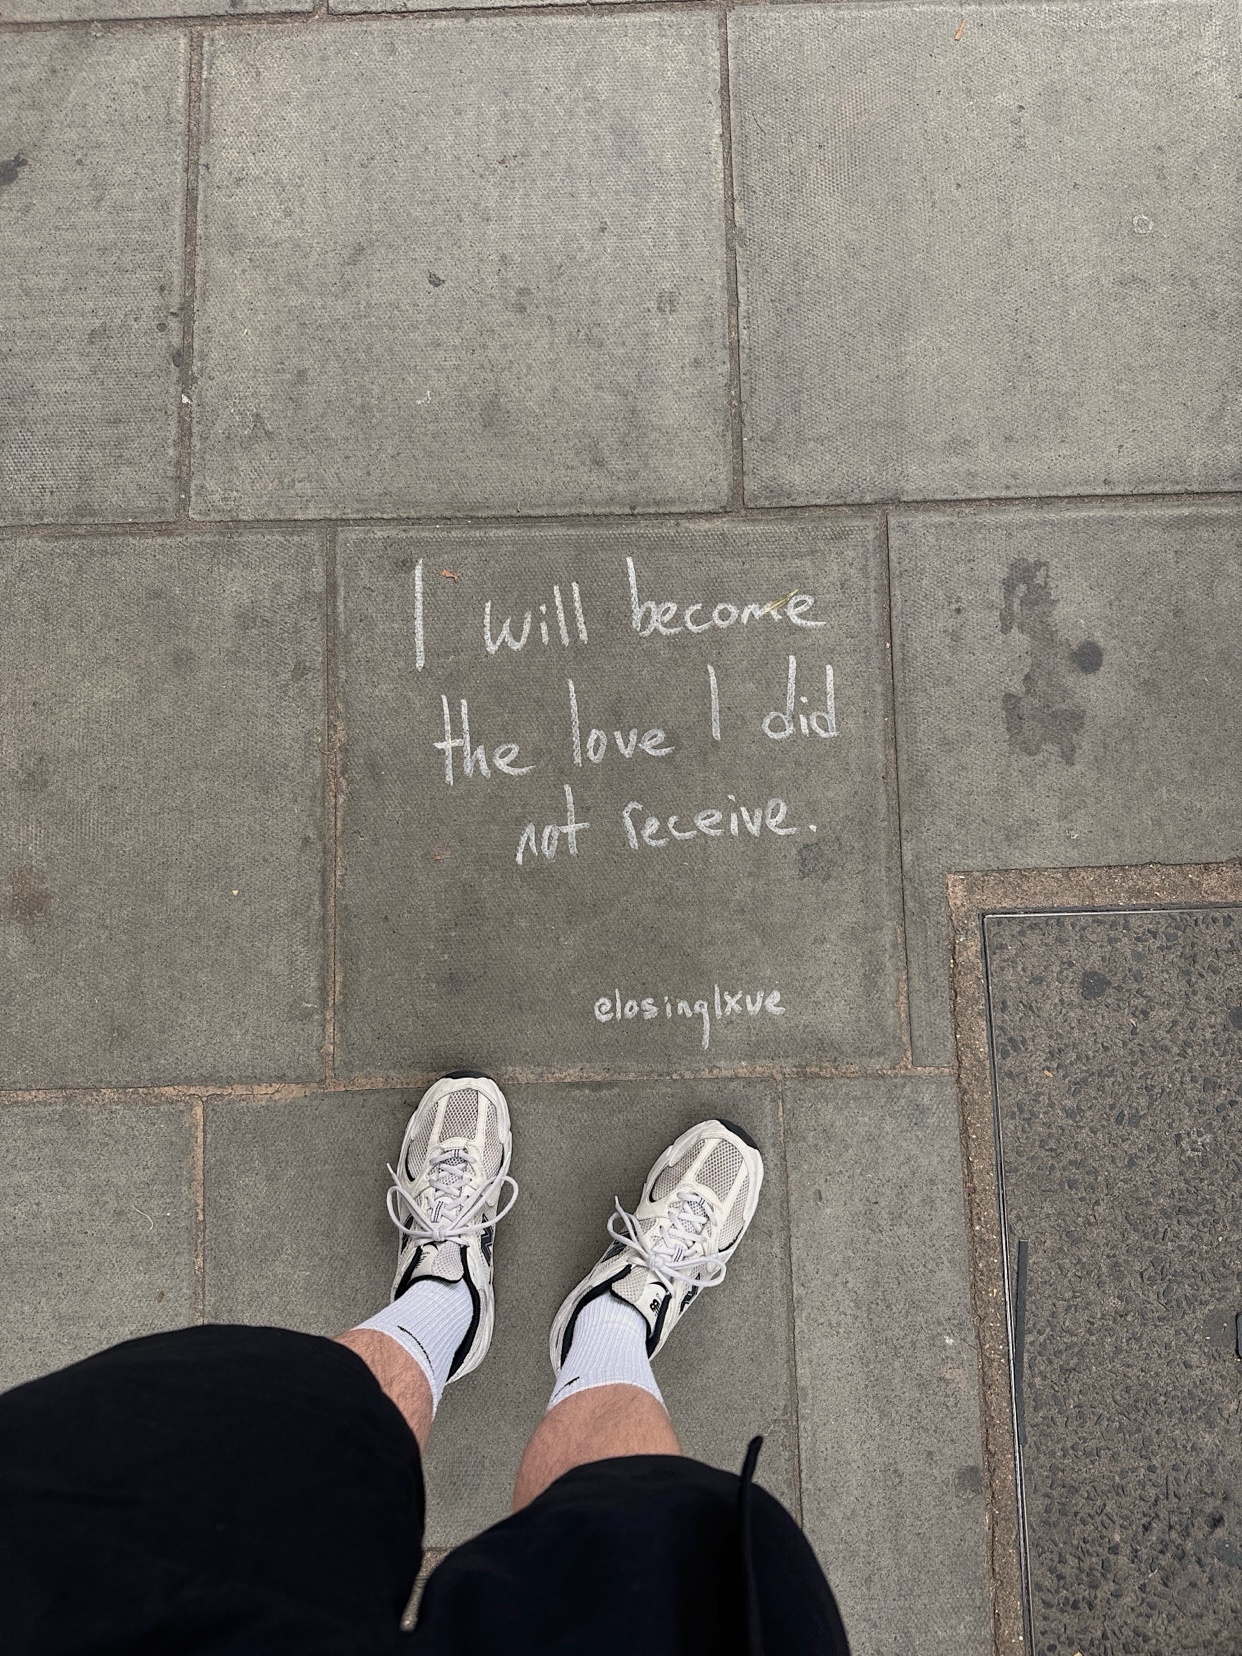 I will become
the love I did
not receive.
@losinglxve